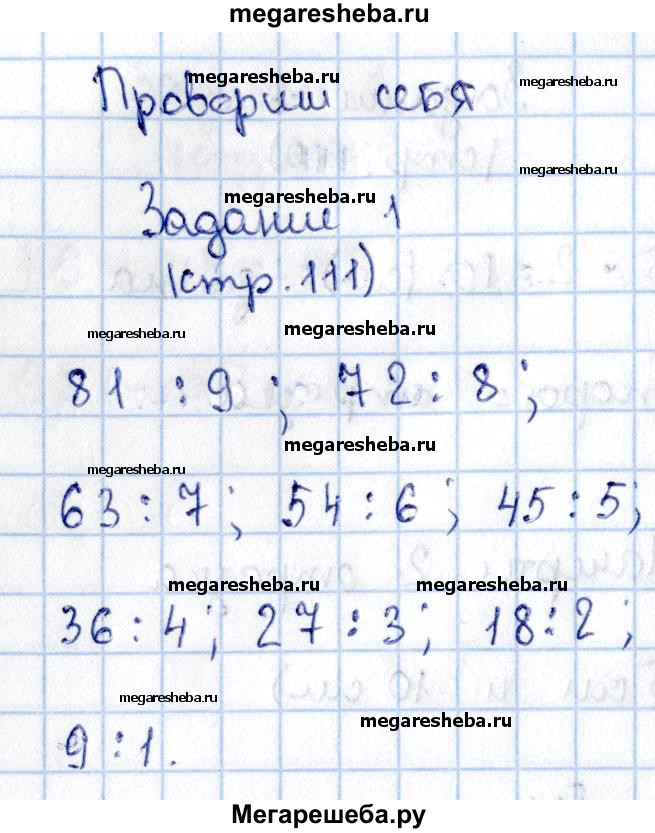 megaresheba.ru
megaresheba.ru
megaresheba.ru
Проверим себя
megaresheba.ru
megaresheba.ru
Задание 1
(стр. 111)
megaresheba.ru
megaresheba.ru
81 : 9 ; 72 : 8 ;
megaresheba.ru
megaresheba.ru
63 : 7 ; 54 : 6 ; 45 : 5 ;
megaresheba.ru
megaresheba.ru
36 : 4 ; 27 : 3 ; 18 : 2 ;
megaresheba.ru
megaresheba.ru
9 : 1 .
Мегарешеба.ру